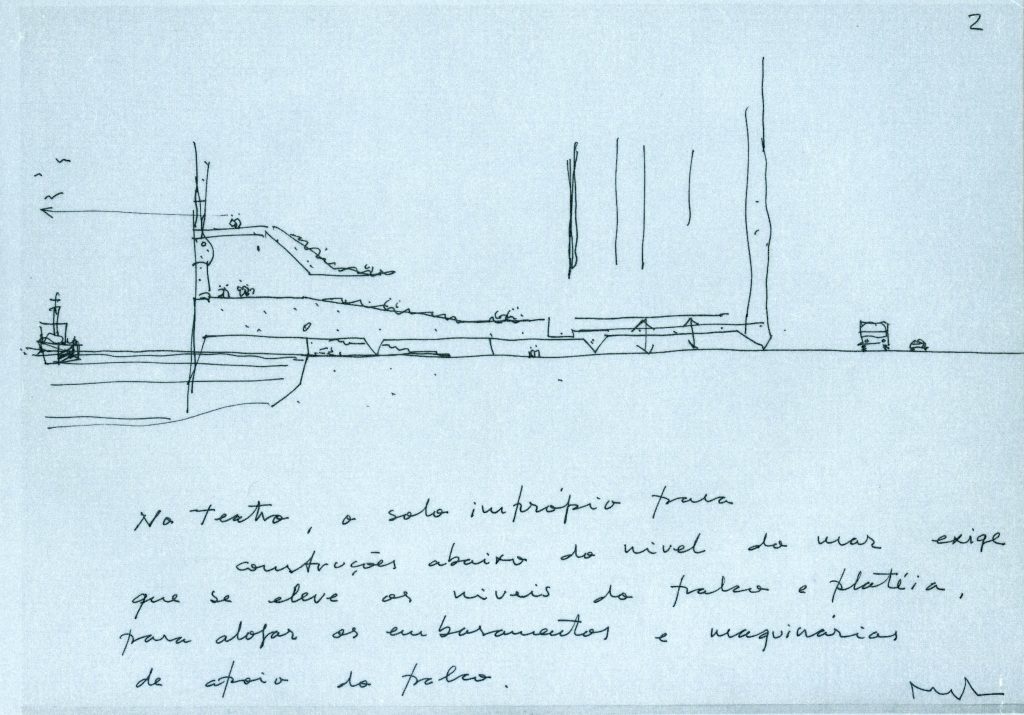 2
No teatro, o solo impróprio para
construções abaixo do nível do mar exige
que se eleve os níveis do palco e platéia,
para alojar os embasamentos e maquinárias
de apoio do palco.